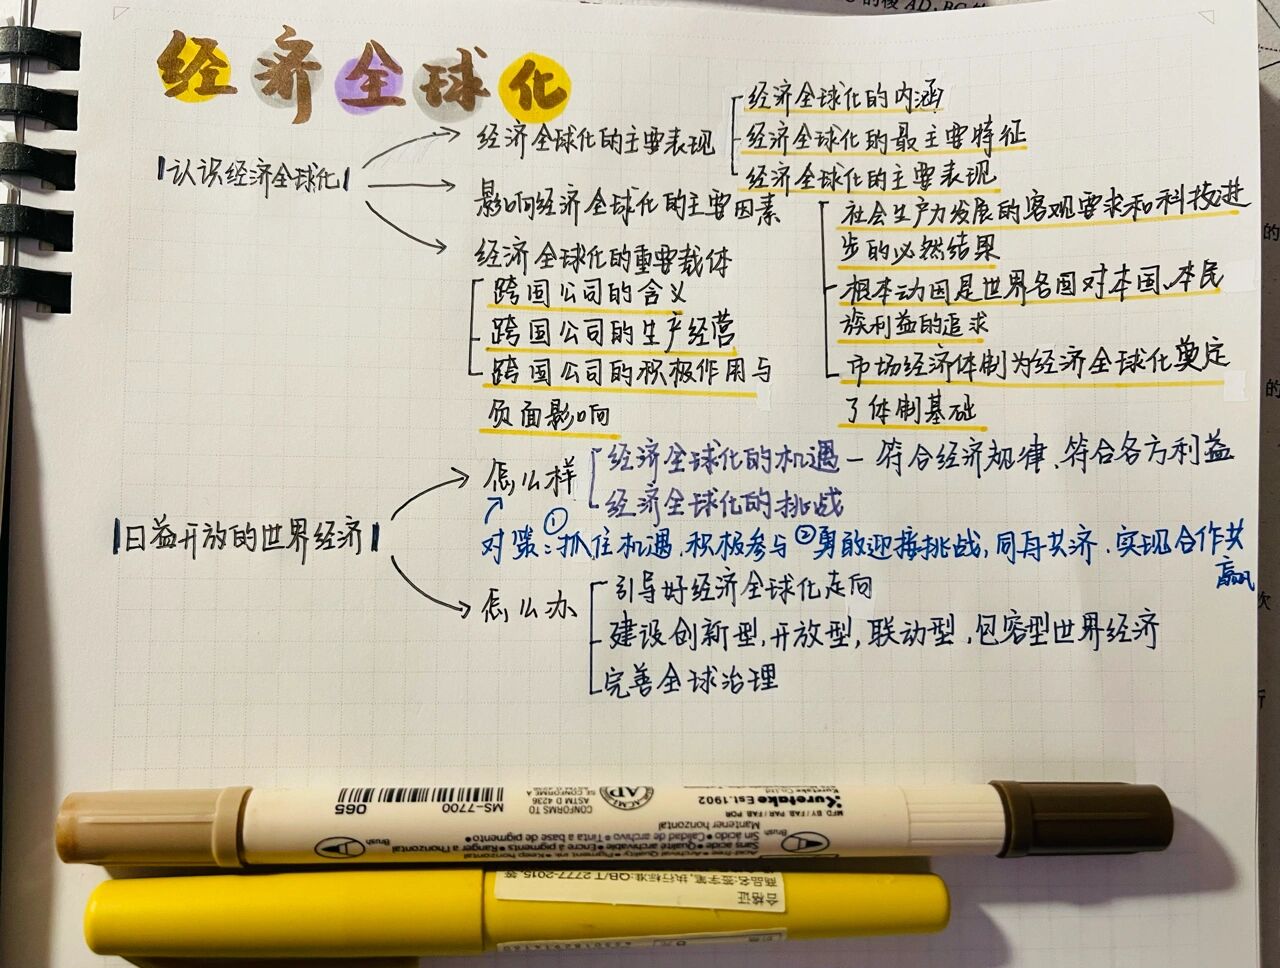 经济全球化
认识经济全球化
经济全球化的主要表现
经济全球化的内涵
经济全球化的最主要特征
经济全球化的主要表现
影响经济全球化的主要因素
社会生产力发展的客观要求和科技进
步的必然结果
根本动因是世界各国对本国、本民
族利益的追求
市场经济体制为经济全球化奠定
了体制基础
经济全球化的重要载体
跨国公司的含义
跨国公司的生产经营
跨国公司的积极作用与
负面影响
日益开放的世界经济
怎么样
经济全球化的机遇 — 符合经济规律、符合各方利益
经济全球化的挑战
对策:①抓住机遇,积极参与 ②勇敢迎接挑战,同舟共济,实现合作共
赢
怎么办
引导好经济全球化走向
建设创新型,开放型,联动型,包容型世界经济
完善全球治理
MS-7700 065
CONFORMS TO
ASTM D 4236
SE CONFORME A
ACMI AP
Kuretake Est.1902
Kuretake Co.,Ltd
MFD BY / FAB PAR / FAB POR
Brush
Acid free • Archival Quality • Pigment ink • Keep horizontal
Sans acide • Qualité archivable • Encre à pigments • Ranger à l'horizontal
Sin ácido • Calidad de archivo • Tinta a base de pigmento •
Mantener horizontal
Brush
合格证
商品名:签字笔,执行标准:QB/T 2777-2015,等